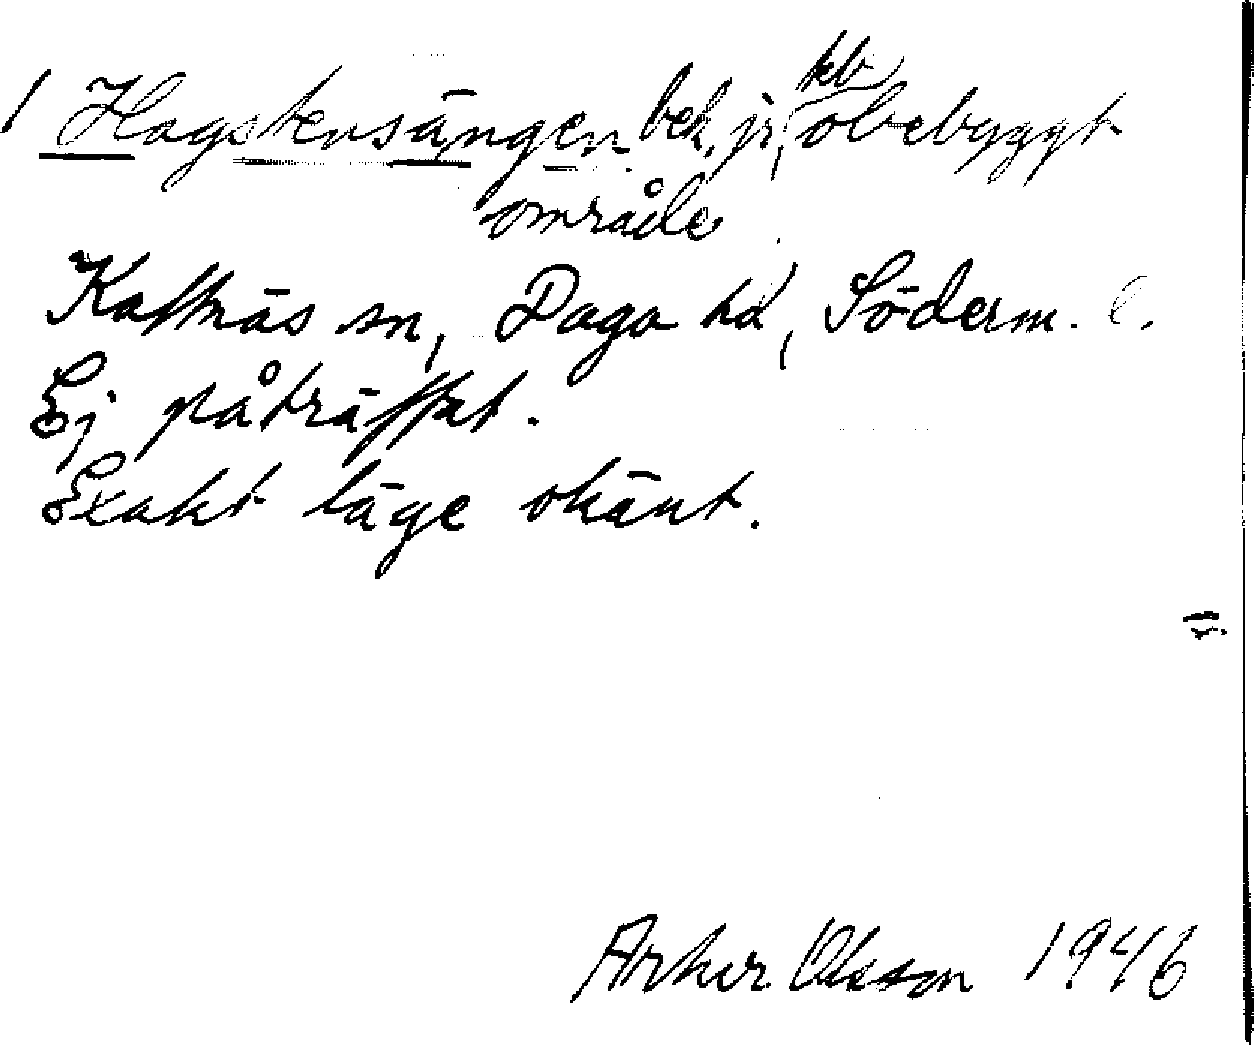 1 Hagstensängen bek. jr, kb obebyggt
område
Kattnäs sn, Daga hd, Söderm. l.
Ej påträffat.
Exakt läge okänt.
Olsson 1946